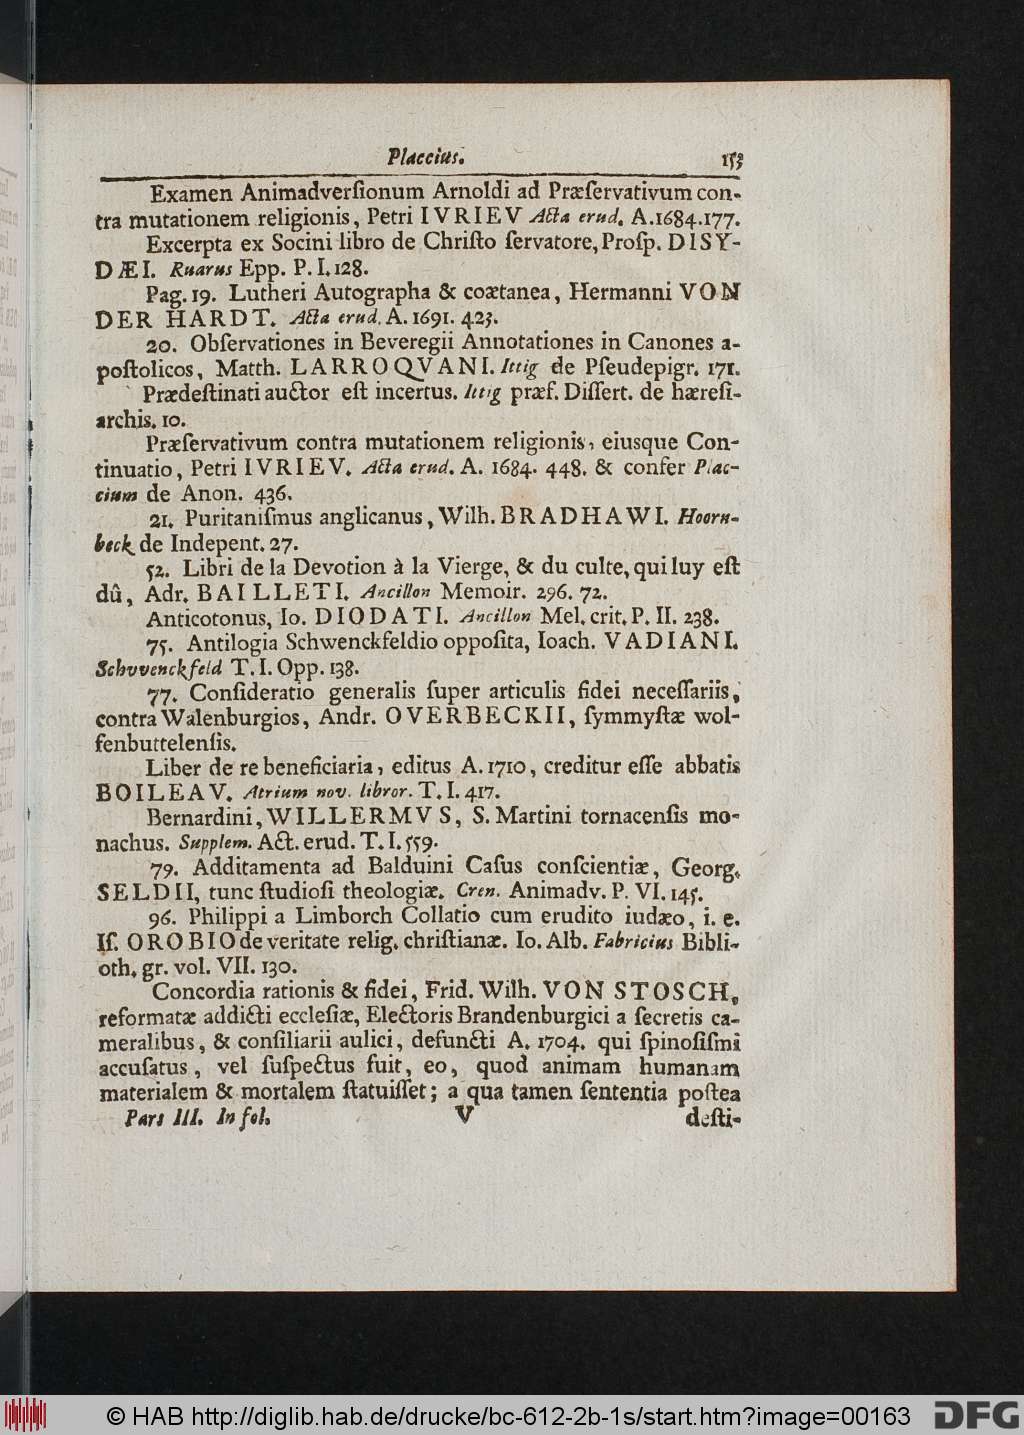 Placcius. 153
Examen Animadverſionum Arnoldi ad Præſervativum con-
tra mutationem religionis, Petri IVRIEV Acta erud. A.1684.177.
Excerpta ex Socini libro de Chriſto ſervatore, Proſp. DISY-
DÆI. Ruarus Epp. P. I. 128.
Pag. 19. Lutheri Autographa & coætanea, Hermanni VON
DER HARDT. Acta erud. A. 1691. 423.
20. Obſervationes in Beveregii Annotationes in Canones a-
poſtolicos, Matth. LARROQVANI. Ittig de Pſeudepigr. 171.
Prædeſtinati auctor eſt incertus. Ittig præf. Diſſert. de hæreſi-
archis. 10.
Præſervativum contra mutationem religionis, eiusque Con-
tinuatio, Petri IVRIEV. Acta erud. A. 1684. 448. & confer Plac-
cium de Anon. 436.
21. Puritaniſmus anglicanus, Wilh. BRADHAWI. Hoorn-
beck de Indepent. 27.
52. Libri de la Devotion à la Vierge, & du culte, qui luy eſt
dû, Adr. BAILLETI. Ancillon Memoir. 296. 72.
Anticotonus, Io. DIODATI. Ancillon Mel. crit. P. II. 238.
75. Antilogia Schwenckfeldio oppoſita, Ioach. VADIANI.
Schvvenckfeld T. I. Opp. 138.
77. Conſideratio generalis ſuper articulis fidei neceſſariis,
contra Walenburgios, Andr. OVERBECKII, ſymmyſtæ wol-
fenbuttelenſis.
Liber de re beneficiaria, editus A. 1710, creditur eſſe abbatis
BOILEAV. Atrium nov. libror. T. I. 417.
Bernardini, WILLERMVS, S. Martini tornacenſis mo-
nachus. Supplem. Act. erud. T. I. 559.
79. Additamenta ad Balduini Caſus conſcientiæ, Georg.
SELDII, tunc ſtudioſi theologiæ. Cren. Animadv. P. VI. 145.
96. Philippi a Limborch Collatio cum erudito iudæo, i. e.
Iſ. OROBIO de veritate relig. chriſtianæ. Io. Alb. Fabricius Bibli-
oth. gr. vol. VII. 130.
Concordia rationis & fidei, Frid. Wilh. VON STOSCH,
reformatæ addicti eccleſiæ, Electoris Brandenburgici a ſecretis ca-
meralibus, & conſiliarii aulici, defuncti A. 1704. qui ſpinoſiſmi
accuſatus, vel ſuſpectus fuit, eo, quod animam humanam
materialem & mortalem ſtatuiſſet; a qua tamen ſententia poſtea
Pars III. In fol. V deſti-
© HAB http://diglib.hab.de/drucke/bc-612-2b-1s/start.htm?image=00163 DFG